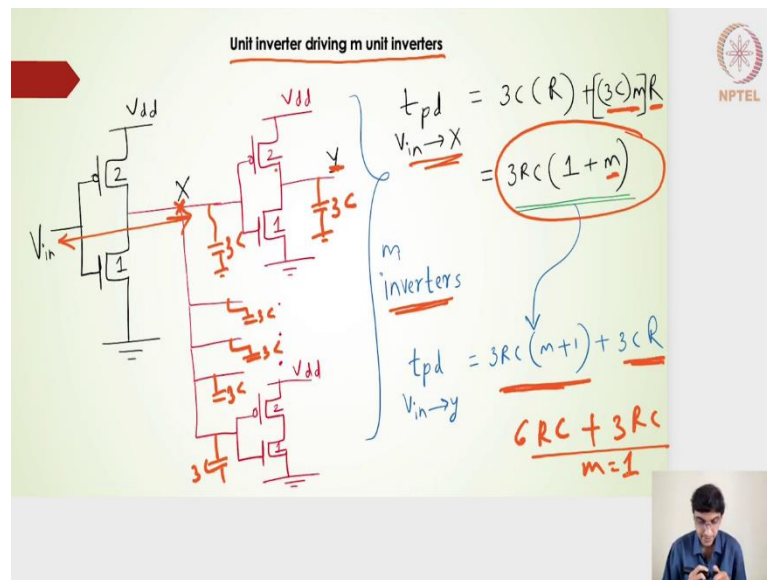 Unit inverter driving m unit inverters
NPTEL
Vdd
2
1
Vin
X
3C
Vdd
2
1
Y
3C
3C
3C
3C
Vdd
2
1
3C
m
inverters
tpd = 3C(R) + [(3C)m]R
Vin→X
= 3RC(1+m)
tpd = 3RC(m+1) + 3CR
Vin→y
6RC + 3RC
m=1